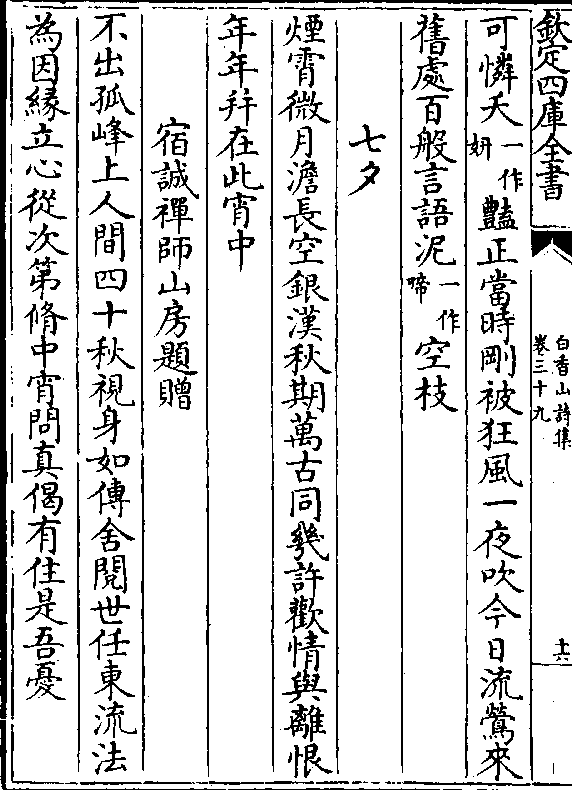 欽定四庫全書
白香山詩集
卷三十九
十六
可憐夭一作妍豔正當時剛被狂風一夜吹今日流鶯來
舊處百般言語泥一作啼空枝
七夕
煙霄微月澹長空銀漢秋期萬古同幾許歡情與離恨
年年并在此宵中
宿誠禪師山房題贈
不出孤峰上人間四十秋視身如傳舍閱世任東流法
為因緣立心從次第脩中宵問真偈有住是吾憂